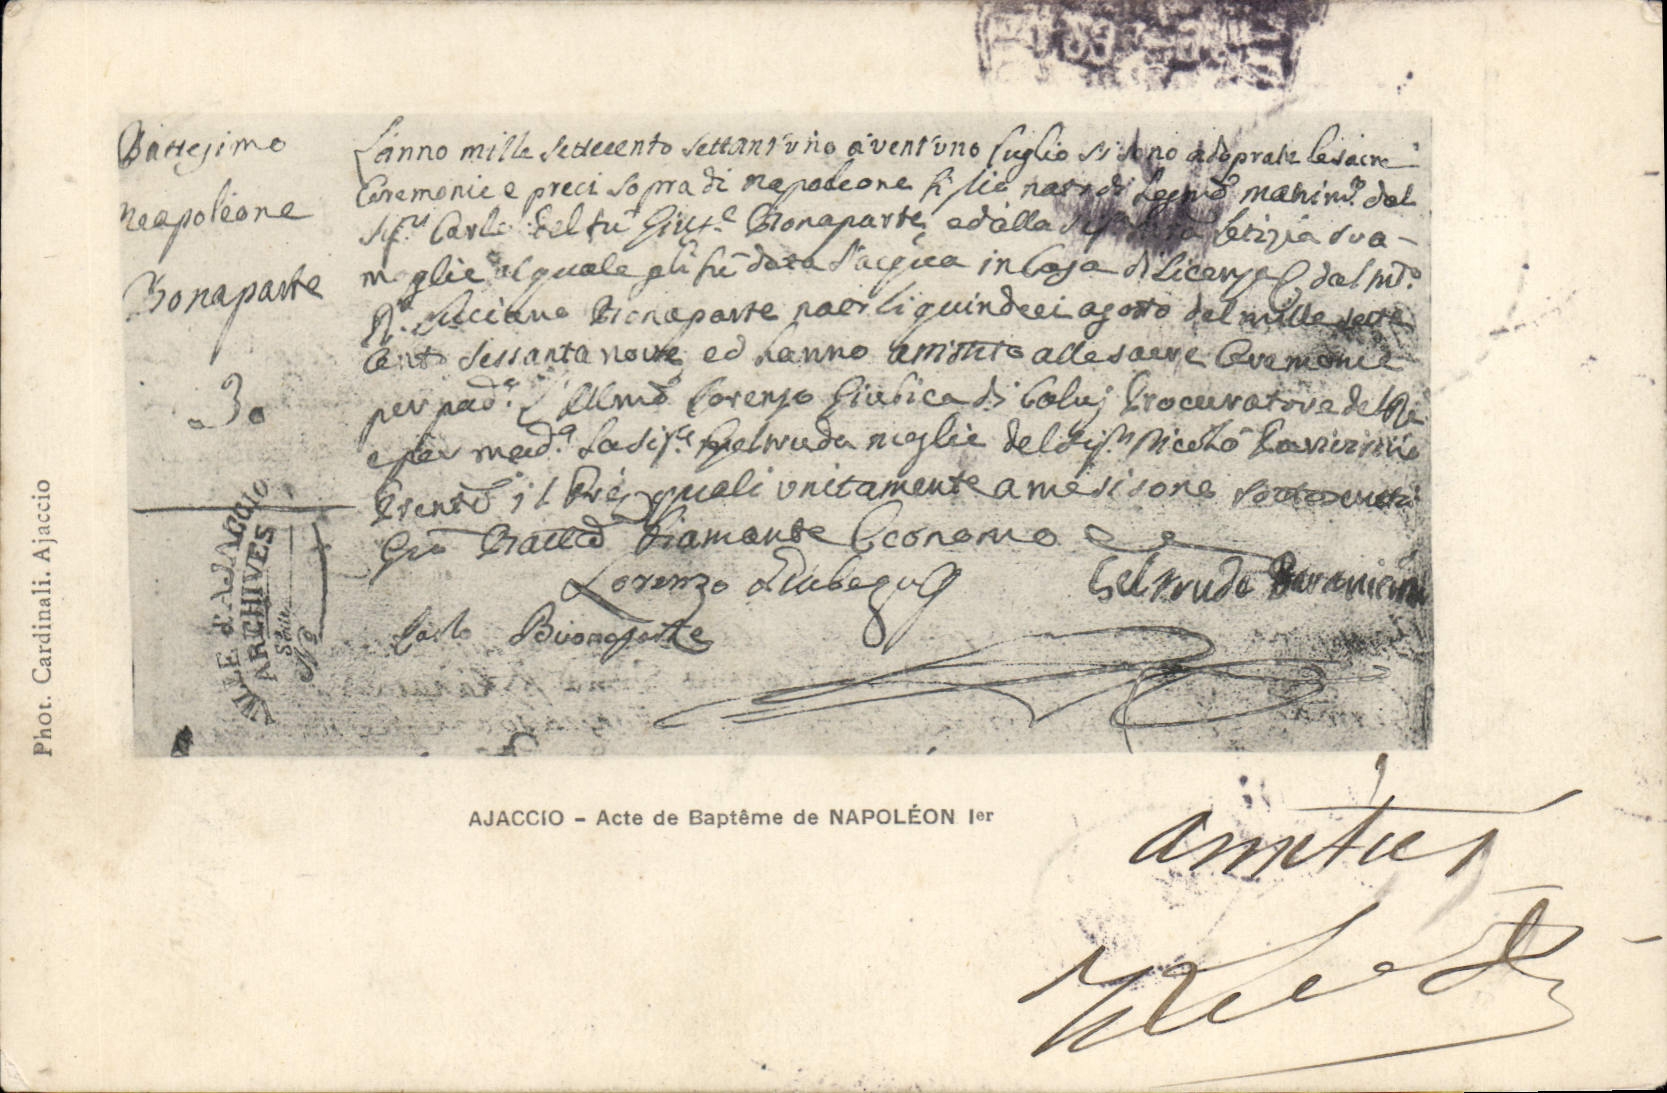 Battesimo
Neapoleone
Bonaparte
30
L'anno mille settecento settant'uno a vent'uno luglio si sono adoprate le sacre
Ceremonie e preci sopra di Napoleone figlio nato di Legmo. Matrimo. dal
Sigr. Carlo del fu Giuse. Bonaparte, ed dalla Letizia sua
moglie al quale gli fu data l'acqua in Casa di Licenza dal mto.
Rdo. Luciano Bonaparte nato li quindeci agosto del mille sette
Cento sessanta nove ed hanno assistito alle sacre Ceremonie
per pado. l'Illmo. Lorenzo Giubica di Calvj Procuratore del Rè
e per mada. la Siga. Geltruda moglie del Sigr. Nicolò Paravicini
Presente il Prè, quali unitamente a me si sono sottoscritti
Gio Batta Diamante Economo
Lorenzo Giubega
Geltruda Paravicini
Carlo Buonaparte
VILLE d'AJACCIO
ARCHIVES
Série
No
Phot. Cardinali. Ajaccio
AJACCIO – Acte de Baptême de NAPOLÉON Ier
amitiés